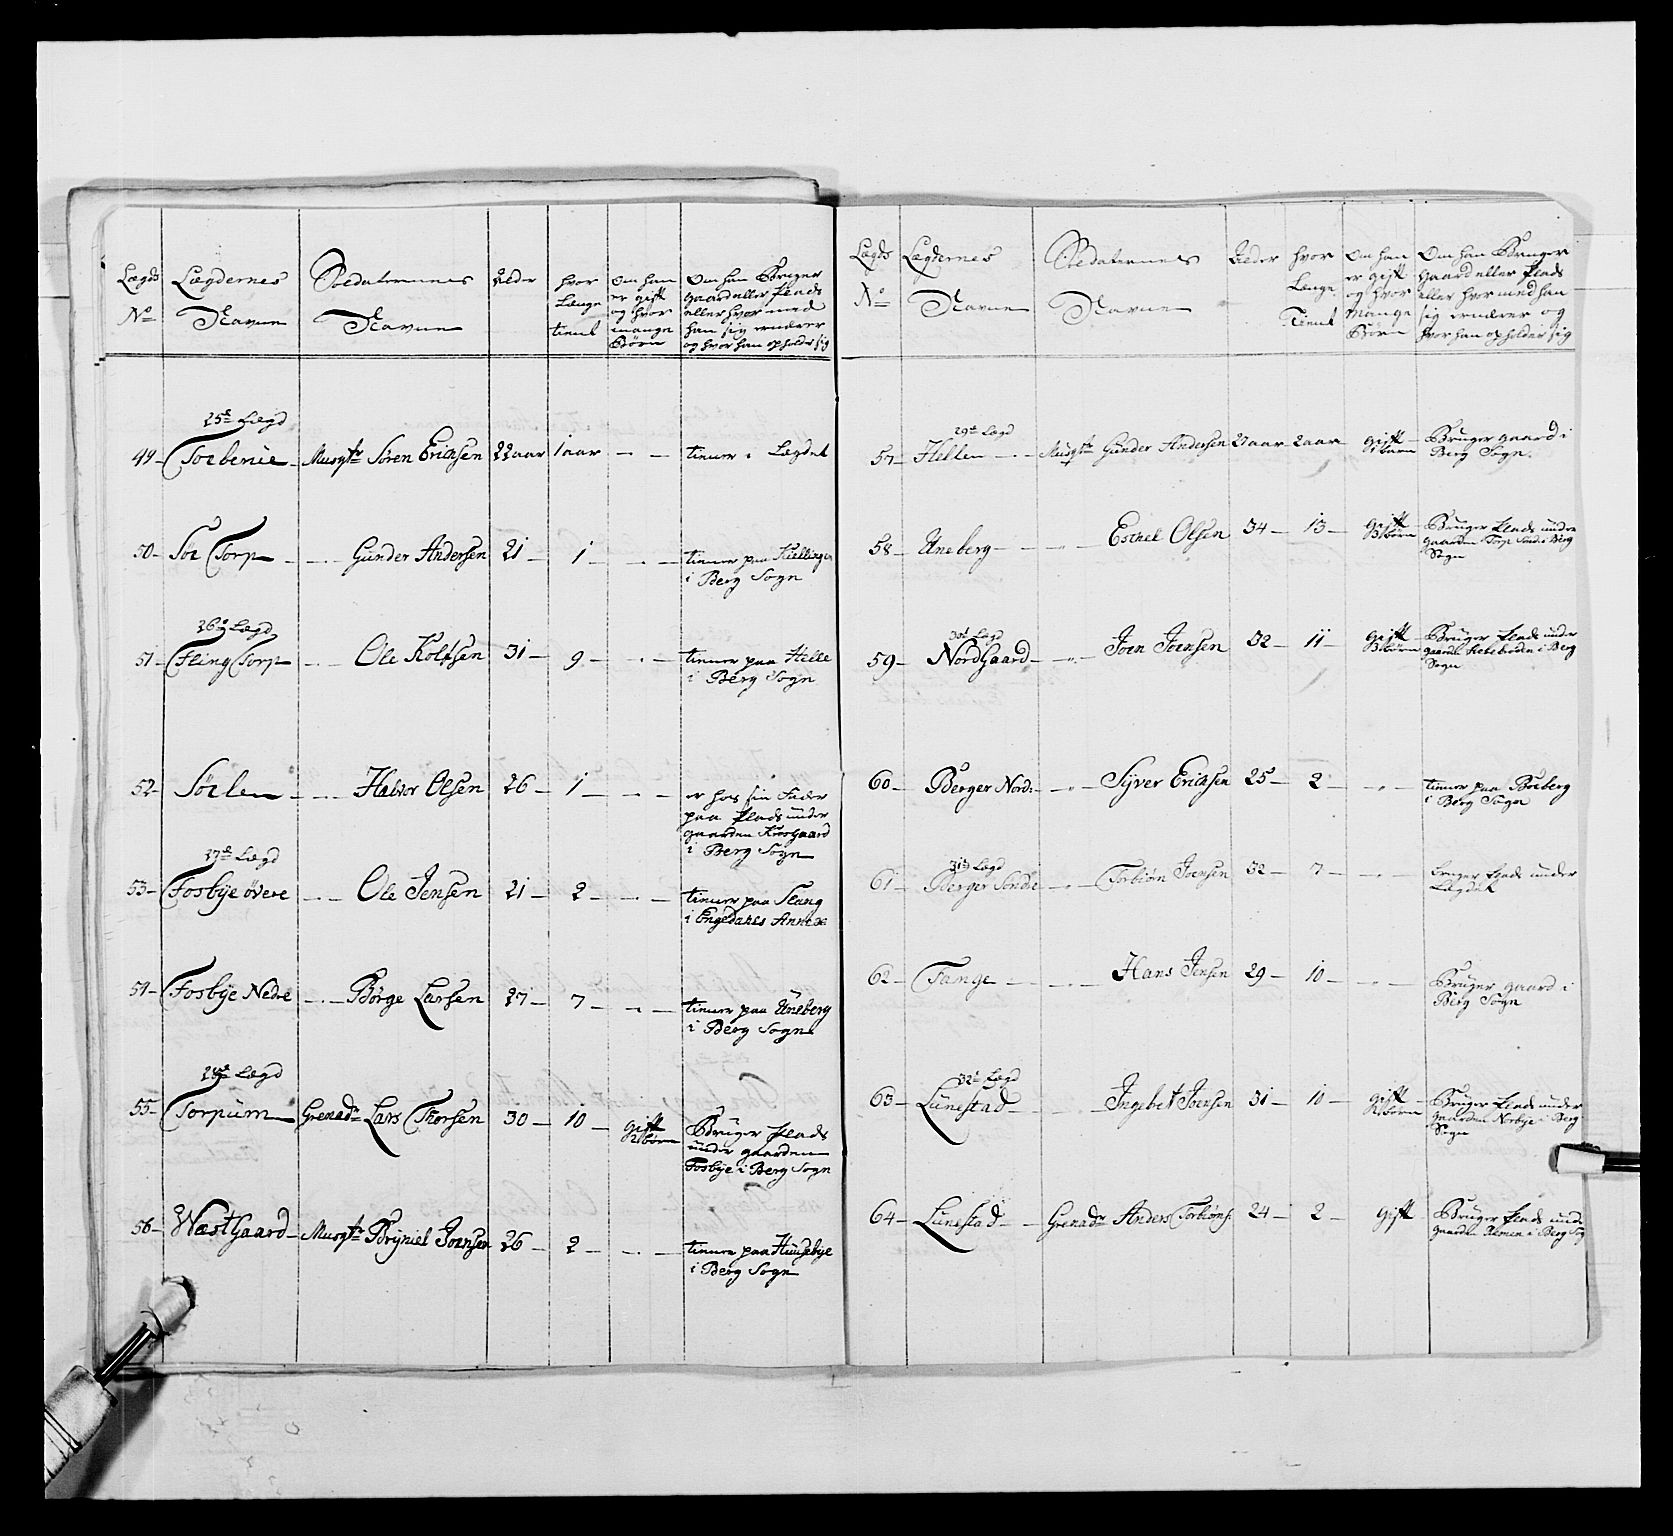 Lægds Lægdernes Soldaternes Alder hvor om han Om han Bruger
No Navne Navne Længe er gift gaard eller Plads
tient og hvor eller hvor med
mange han sig ernærer
Børn og hvor han opholder sig
25de Lægd
49 Torbenie Musqtr Søren Erichsen 22 aar 1 aar - tiener i Lægdet
50 Sør Torp Gunder Andersen 21 1 - tiener paa Kullinger
i Berg Sogn
26de Lægd
51 Fling Torp Ole Kolssen 31 9 - tiener paa Helle
i Berg Sogn
52 Sørlen Halvor Olsen 26 1 - er hos sin Fader
paa Plads under
gaarden Krosgaard
i Berg Sogn
27de Lægd
53 Fosbÿe övere Ole Jensen 21 2 - tiener paa Stang
i Engedahls Annex
54 Fosbÿe Nedre Børge Larsen 27 7 - tiener paa Uneberg
i Berg Sogn
28de Lægd
55 Torpum Grenadr Lars Thorsen 30 10 Gift Bruger Plads
2 børn under gaarden
Fosbÿe i Berg Sogn
56 Wæstgaard Musqtr Brÿniel Joensen 26 2 - tiener paa Huusebÿe
i Berg Sogn
Lægds Lægdernes Soldaternes Alder hvor Om han Om han Bruger
No Navne Navne Længe er gift gaard eller Plads
Tient og hvor eller hvor med han
Mange sig ernærer og
Børn hvor han opholder sig
29de Lægd
57 Hellen Musqtr Gunder Andersen 27 aar 2 aar gift Bruger gaard i
1 barn Berg Sogn
58 Uneberg Eschel Olsen 34 13 gift Bruger Plads under
3 børn gaarden Torp Søndre i Berg
Sogn
30te Lægd
59 Nordgaard Joen Joensen 32 11 Gift Bruger Plads under
3 børn gaarden i Berg
Sogn
60 Berger Nord: Syver Erichsen 25 2 - tiener paa Boeberg
i Berg Sogn
31te Lægd
61 Berger Søndre Torbiøn Joensen 32 7 - bruger Plads under
Lægdet
62 Tange Hans Jensen 29 10 - Bruger gaard i
Berg Sogn
32te Lægd
63 Lunestad Ingebet Joensen 31 10 gift Bruger Plads under
2 børn gaarden Norbye i Berg
Sogn
64 Lunestad Grenadr Anders Torbiøns: 24 2 gift Bruger Plads under
gaarden Remen i Berg Sog